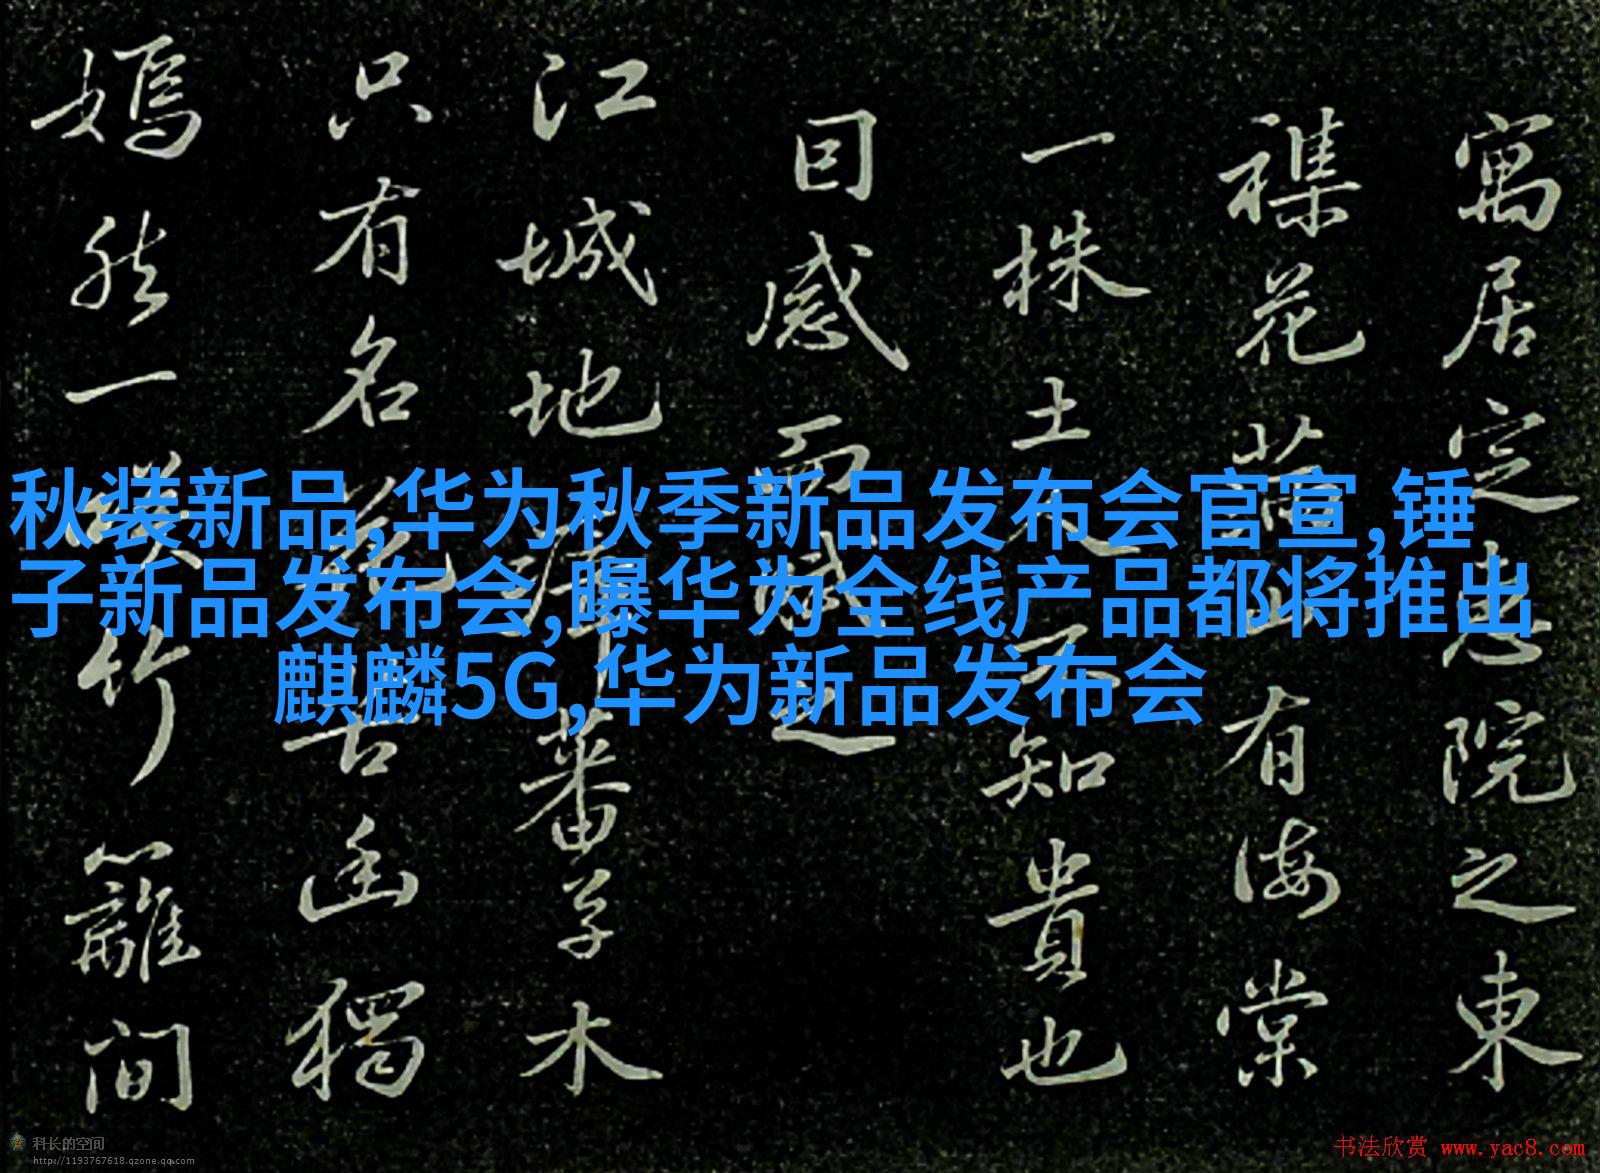 秋装新品,华为秋季新品发布会官宣,锤
子新品发布会,曝华为全线产品都将推出
麒麟5G,华为新品发布会
寓居定惠院之東
襍花滿山有海棠
一株土人不知貴也
囙感而感之
江城地瘴蕃草木
只有名花苦幽獨
嫣然一咲竹籬間
科长的空间
http://1193767618.qzone.qq.com
书法欣赏 www.yac8.com